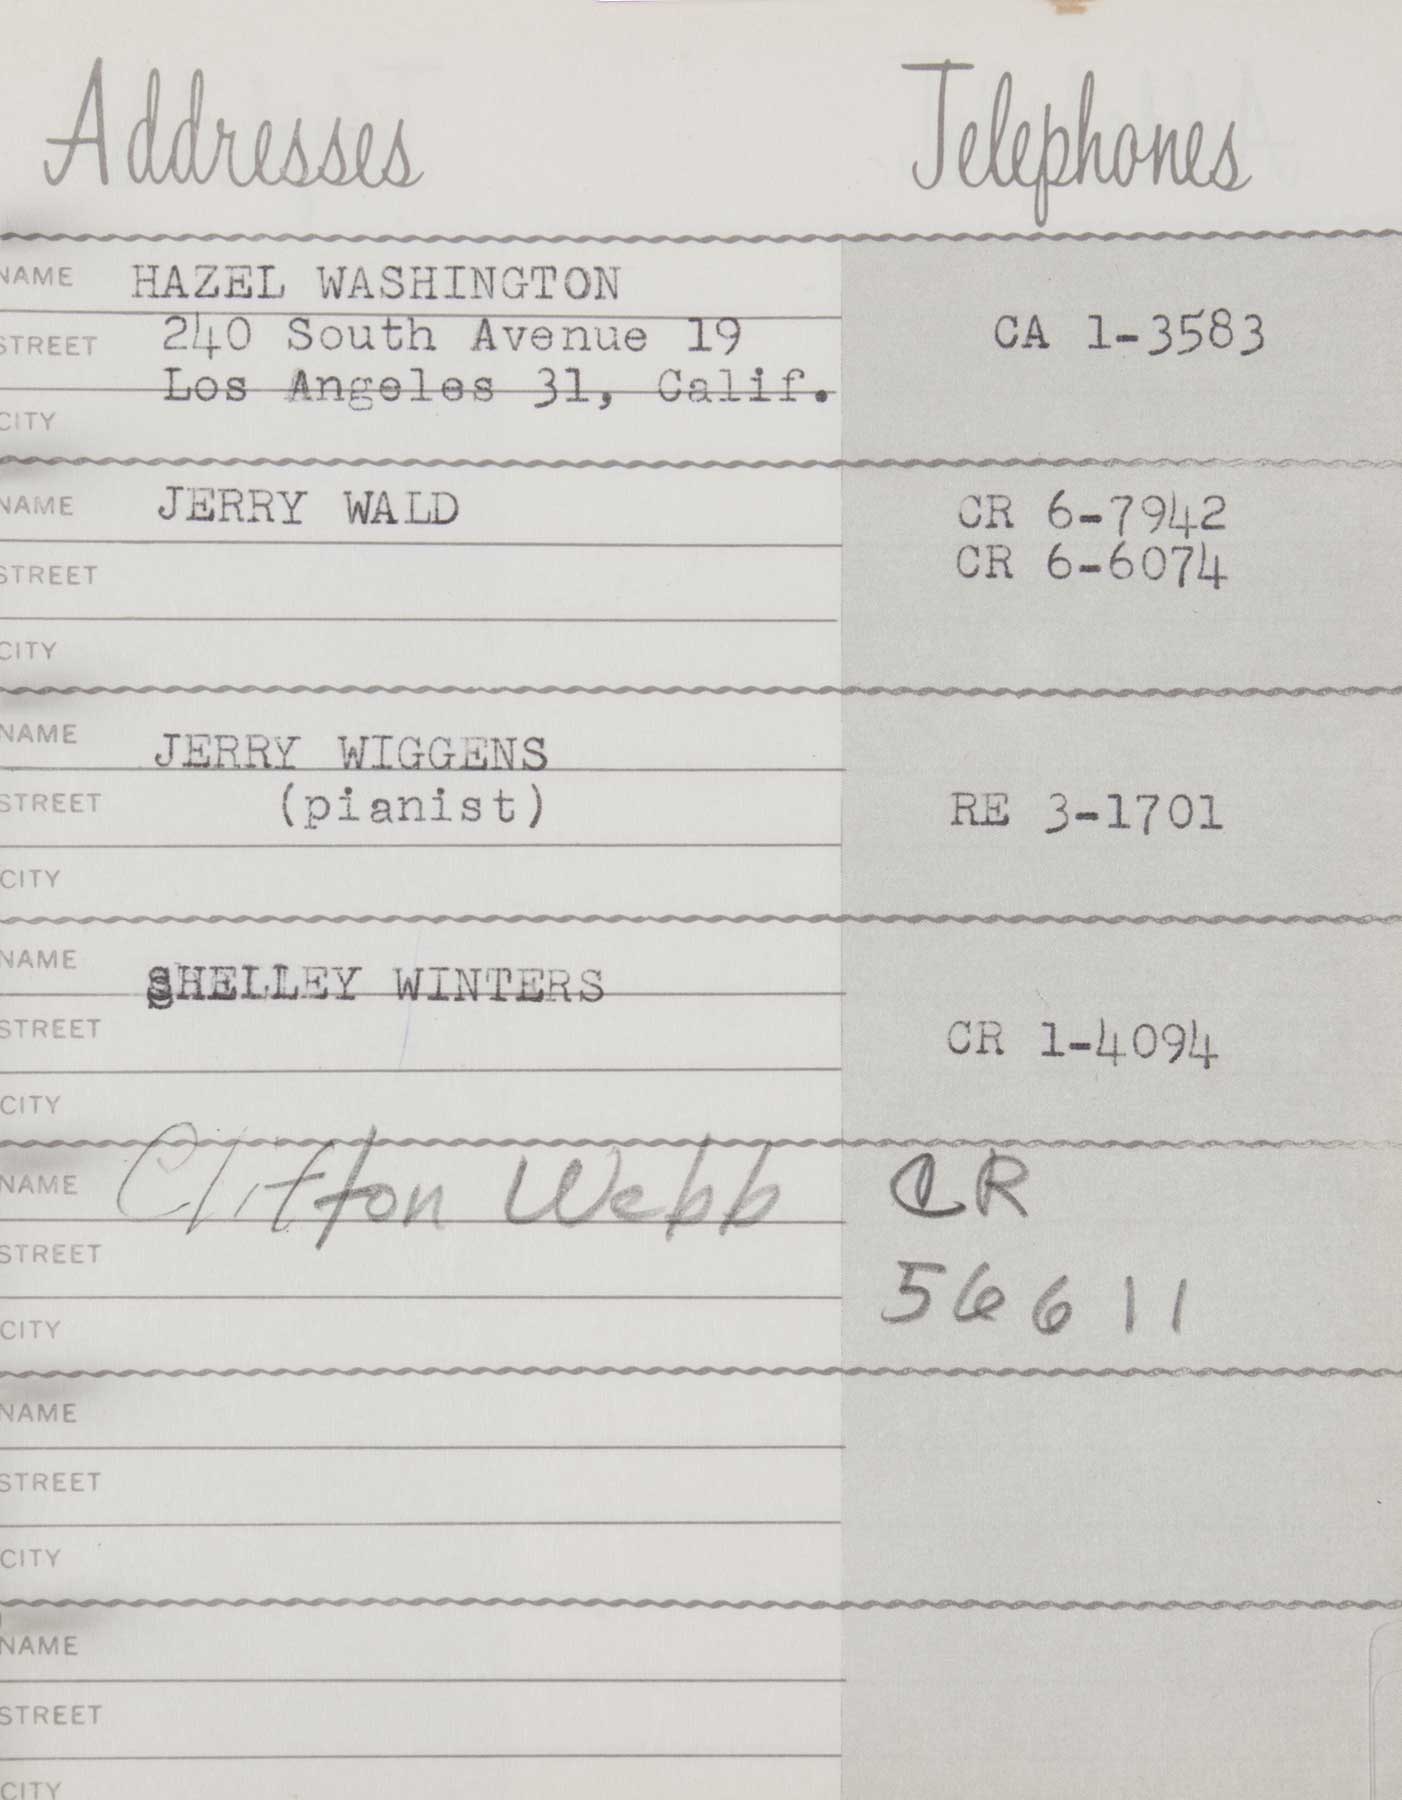 Addresses Telephones
NAME HAZEL WASHINGTON
STREET 240 South Avenue 19 CA 1-3583
Los Angeles 31, Calif.
CITY
NAME JERRY WALD CR 6-7942
CR 6-6074
STREET
CITY
NAME JERRY WIGGENS
STREET (pianist) RE 3-1701
CITY
NAME SHELLEY WINTERS
STREET CR 1-4094
CITY
NAME Clifton Webb CR
STREET 56611
CITY
NAME
STREET
CITY
NAME
STREET
CITY